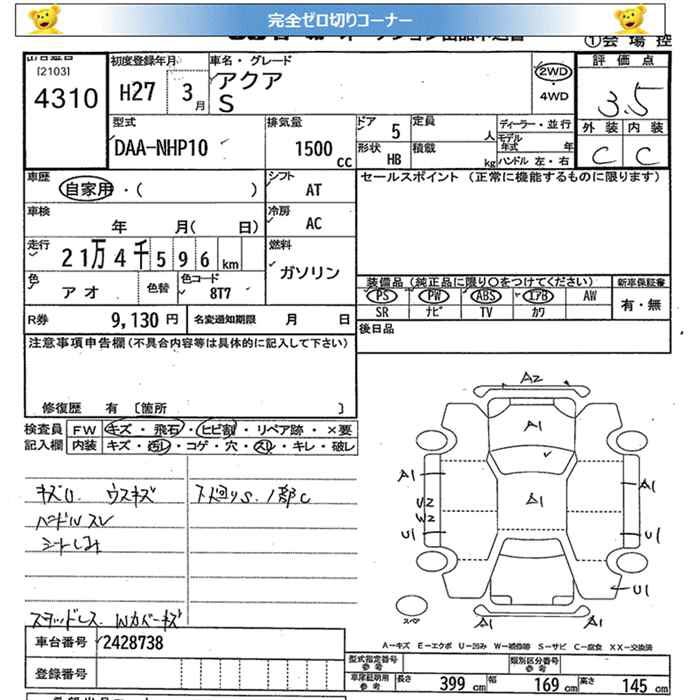 完全ゼロ切りコーナー
①会場控
[2103]
4310
初度登録年月
H27 3月
車名・グレード
アクア
S
2WD
・
4WD
評価点
3.5
外装 内装
C C
型式
DAA-NHP10
排気量
1500cc
ドア 5
形状 HB
定員 人
積載 kg
ディーラー・並行
モデル年式 年
ハンドル 左・右
車歴
自家用・( )
シフト AT
セールスポイント (正常に機能するものに限ります)
車検 年 月( 日)
冷房 AC
走行
21万4千596km
燃料
ガソリン
色 アオ
色替
色コード 8T7
装備品 (純正品に限り○をつけてください)
新車保証書
PS PW ABS エアB AW
有・無
SR ナビ TV カワ
R券 9,130円
名変通知期限 月 日
後日品
注意事項申告欄(不具合内容等は具体的に記入して下さい)
修復歴 有 [箇所 ]
検査員記入欄
FW キズ・飛石・ヒビ割・リペア跡・×要
内装 キズ・汚レ・コゲ・穴・スリ・キレ・破レ
キズU ウスキズ
ハンドルスレ
シートしみ
下廻りS.1部C
スタッドレス Wカバーキズ
A2
A1
A1
A1
A1
A1
U2
W2
U1
U1
U1
A1
スペア
A-キズ E-エクボ U-凹み W-補修等 S-サビ C-腐食 XX-交換済
車台番号 2428738
登録番号
型式指定番号 参考
類別区分番号 参考
車庫証明用 参考
長さ 399cm
幅 169cm
高さ 145cm